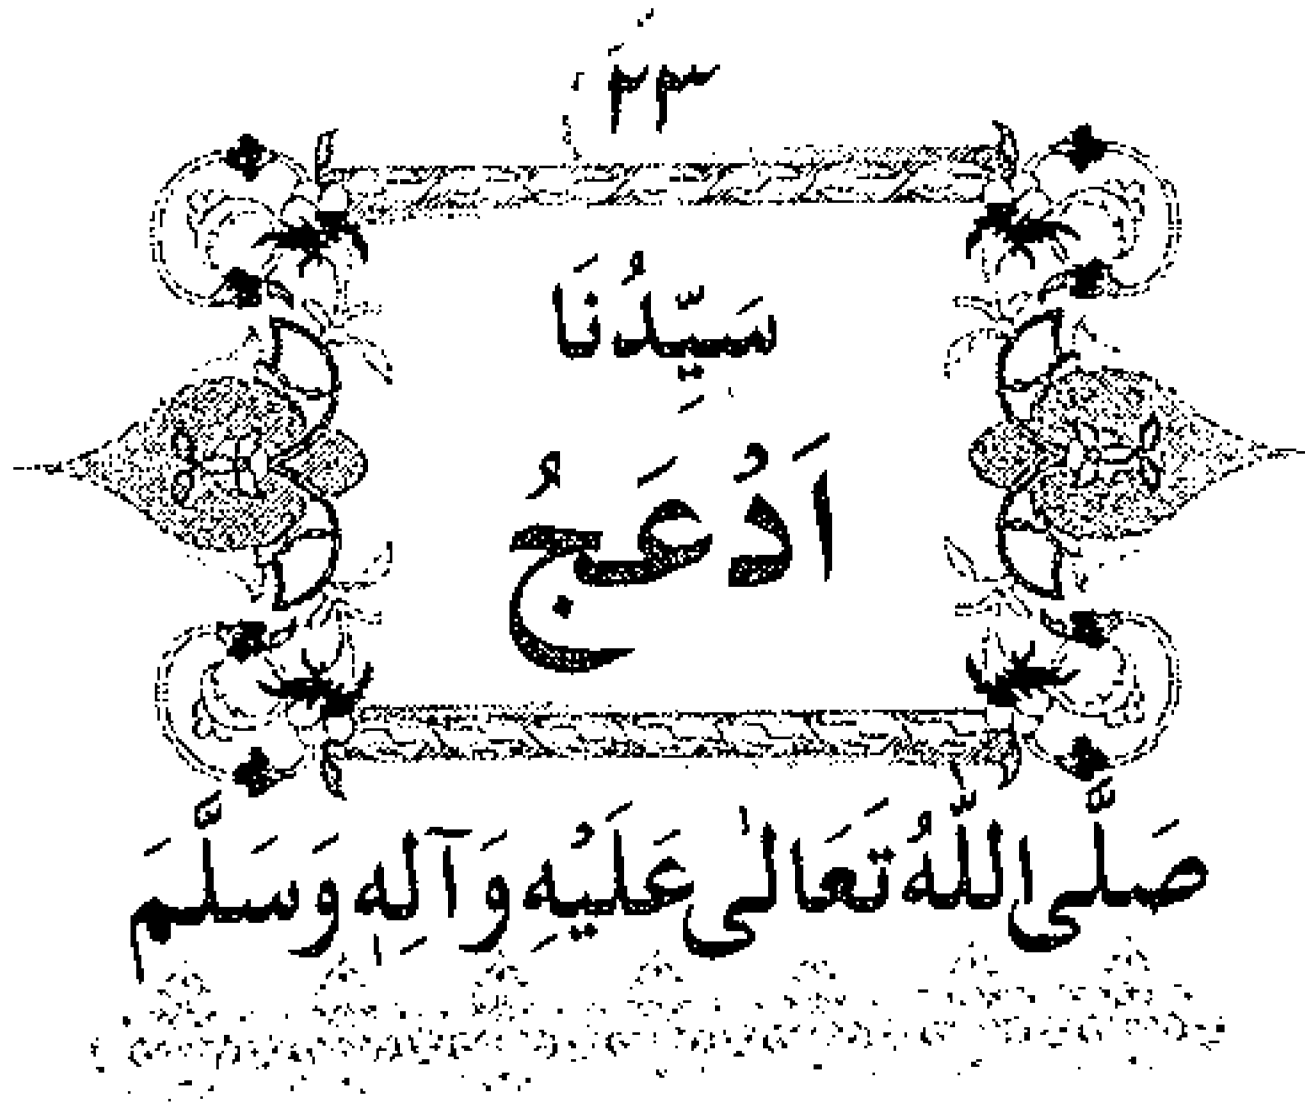 ٢٣
سَيِّدُنَا
اَدْعَجُ
صَلَّى اللّٰهُ تَعَالٰى عَلَيْهِ وَآلِهٖ وَسَلَّمَ